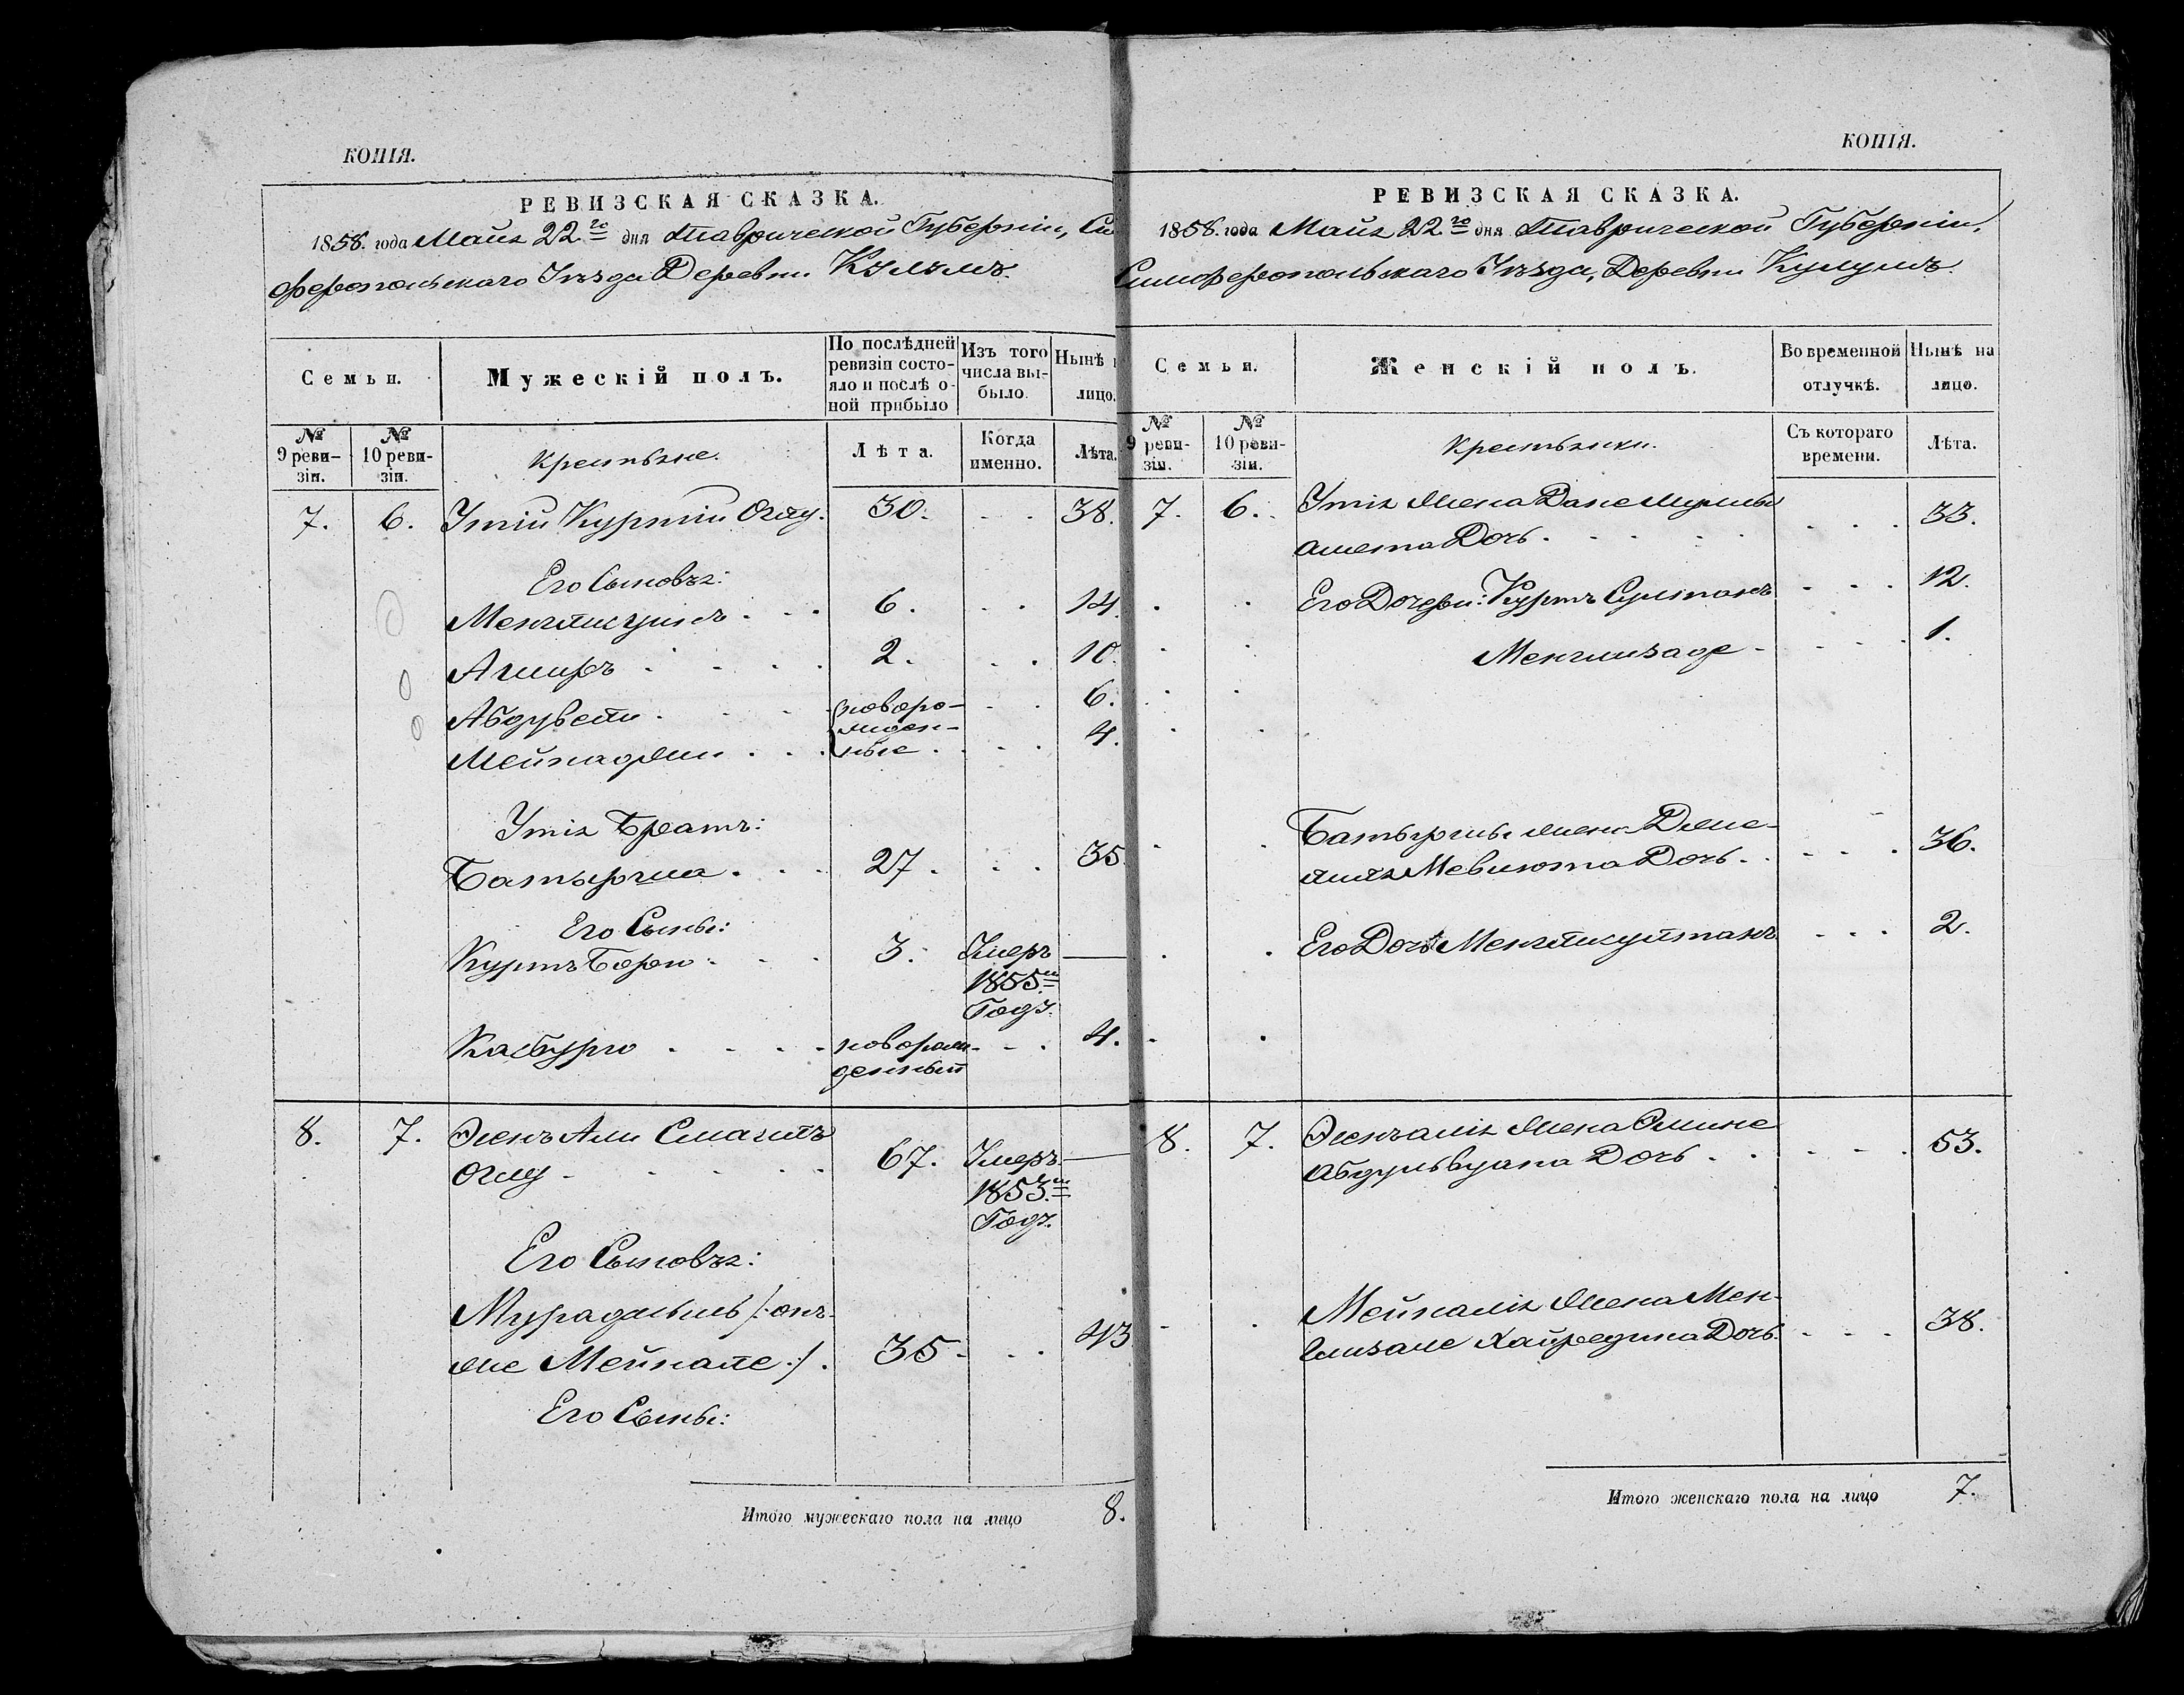 КОПІЯ.
РЕВИЗСКАЯ СКАЗКА.
1858. года Маія 22.го дня Таврической Губерніи, Си
феропольскаго Уѣзда Деревни
Семьи.
Мужескій полъ.
По послѣдней ревизіи состо-
яло и послѣ о-
ной прибыло
Изъ того числа вы-
было.
Нынѣ
лицо.
№ 9 реви-
зіи.
№ 10 реви-
зіи.
Крестьяне.
Лѣта.
Когда именно.
Лѣта.
7. 6. Утій Куртій Оглу. 30. 38.
Его Сыновья:
6. 14.
Аширъ 2. 10.
Абдувели новоро- 6.
Мейнаджи жден-
ные 4.
Утія Братъ:
Батырша 27. 35
Его Сыны:
Куртъ 3. Умеръ
1855.м
Годѣ.
новорож- 4.
денный
8. 7. Али Смаилъ
Оглу 67. Умеръ
1853.м
Годѣ.
Его Сыновья:
/: онъ-
же Мейнале :/. 35 43
Его Сыны:
Итого мужескаго пола на лицо 8.
КОПІЯ.
РЕВИЗСКАЯ СКАЗКА.
1858. года Маія 22.го дня Таврической Губерніи,
Симферопольскаго Уѣзда, Деревни Кулумъ.
Семьи.
Женскій полъ.
Во временной
отлучкѣ.
Нынѣ на
лицо.
№ 9 реви-
зіи.
№ 10 реви-
зіи.
Крестьянки.
Съ котораго
времени.
Лѣта.
7. 6. Утія Жена
амета Дочь. 33.
Его Дочери: Куртъ Султанъ 12.
Менглизаде 1.
Батырши жена
Дочь. 36.
Его Дочь 2.
8. 7. Жена Эмине
Дочь 53.
Мейналія Жена Мен-
Хайредина Дочь. 38.
Итого женскаго пола на лицо 7.